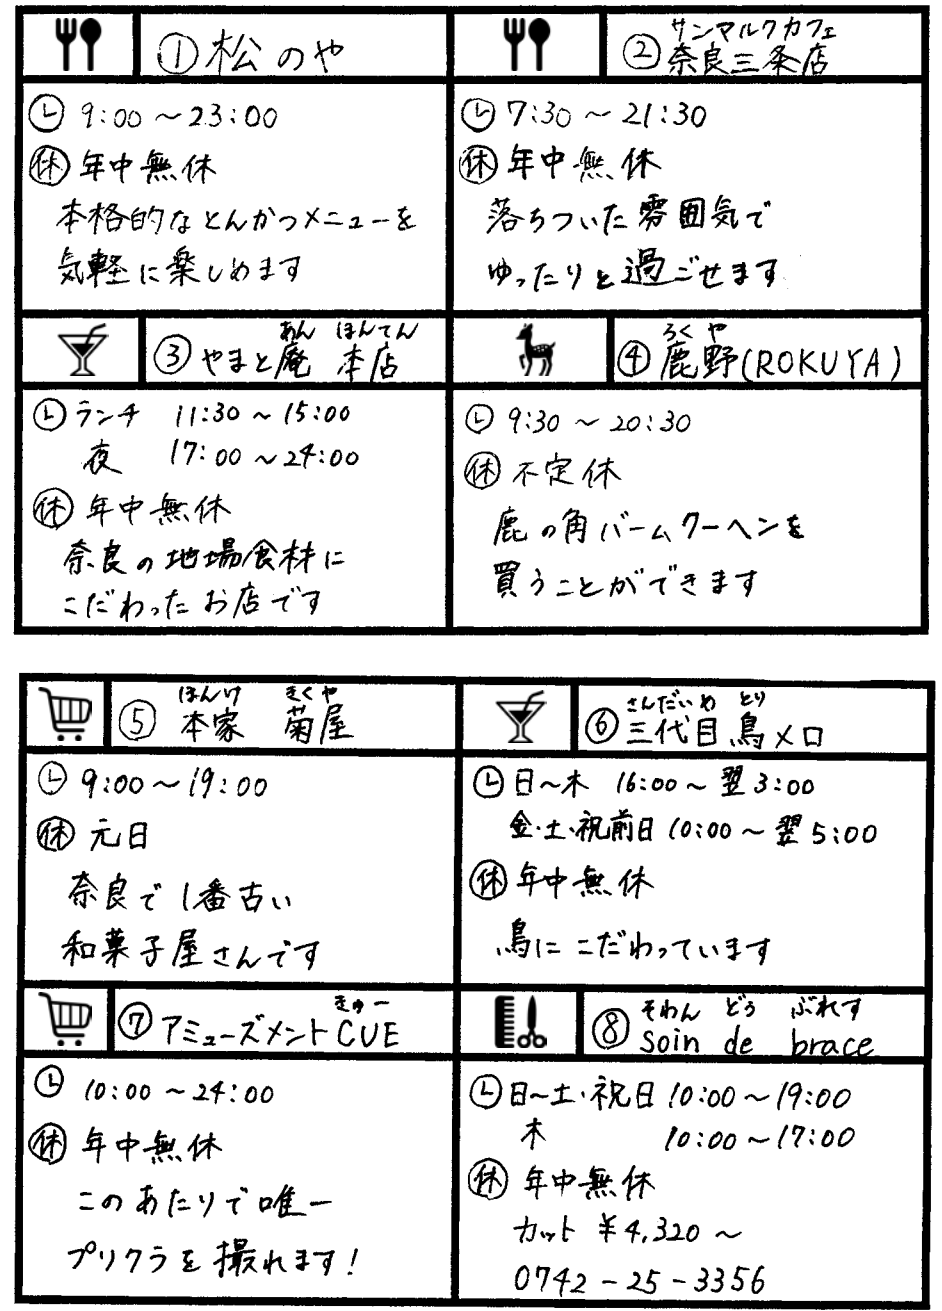 ①松のや
🕒 9:00～23:00
㊡ 年中無休
本格的なとんかつメニューを
気軽に楽しめます
サンマルクカフェ
②奈良三条店
🕒 7:30～21:30
㊡ 年中無休
落ちついた雰囲気で
ゆったりと過ごせます
あん ほんてん
③やまと庵 本店
🕒 ランチ 11:30～15:00
夜 17:00～24:00
㊡ 年中無休
奈良の地場食材に
こだわったお店です
ろくや
④鹿野(ROKUYA)
🕒 9:30～20:30
㊡ 不定休
鹿の角バームクーヘンを
買うことができます
ほんけ きくや
⑤ 本家 菊屋
🕒 9:00～19:00
㊡ 元日
奈良で1番古い
和菓子屋さんです
さんだいめ とり
⑥三代目鳥メロ
🕒 日～木 16:00～翌3:00
金・土・祝前日 10:00～翌5:00
㊡ 年中無休
鳥にこだわっています
きゅー
⑦アミューズメントCUE
🕒 10:00～24:00
㊡ 年中無休
このあたりで唯一
プリクラを撮れます!
そわん どぅ ぶれす
⑧ soin de brace
🕒 日～土・祝日 10:00～19:00
木 10:00～17:00
㊡ 年中無休
カット ¥4,320～
0742-25-3356